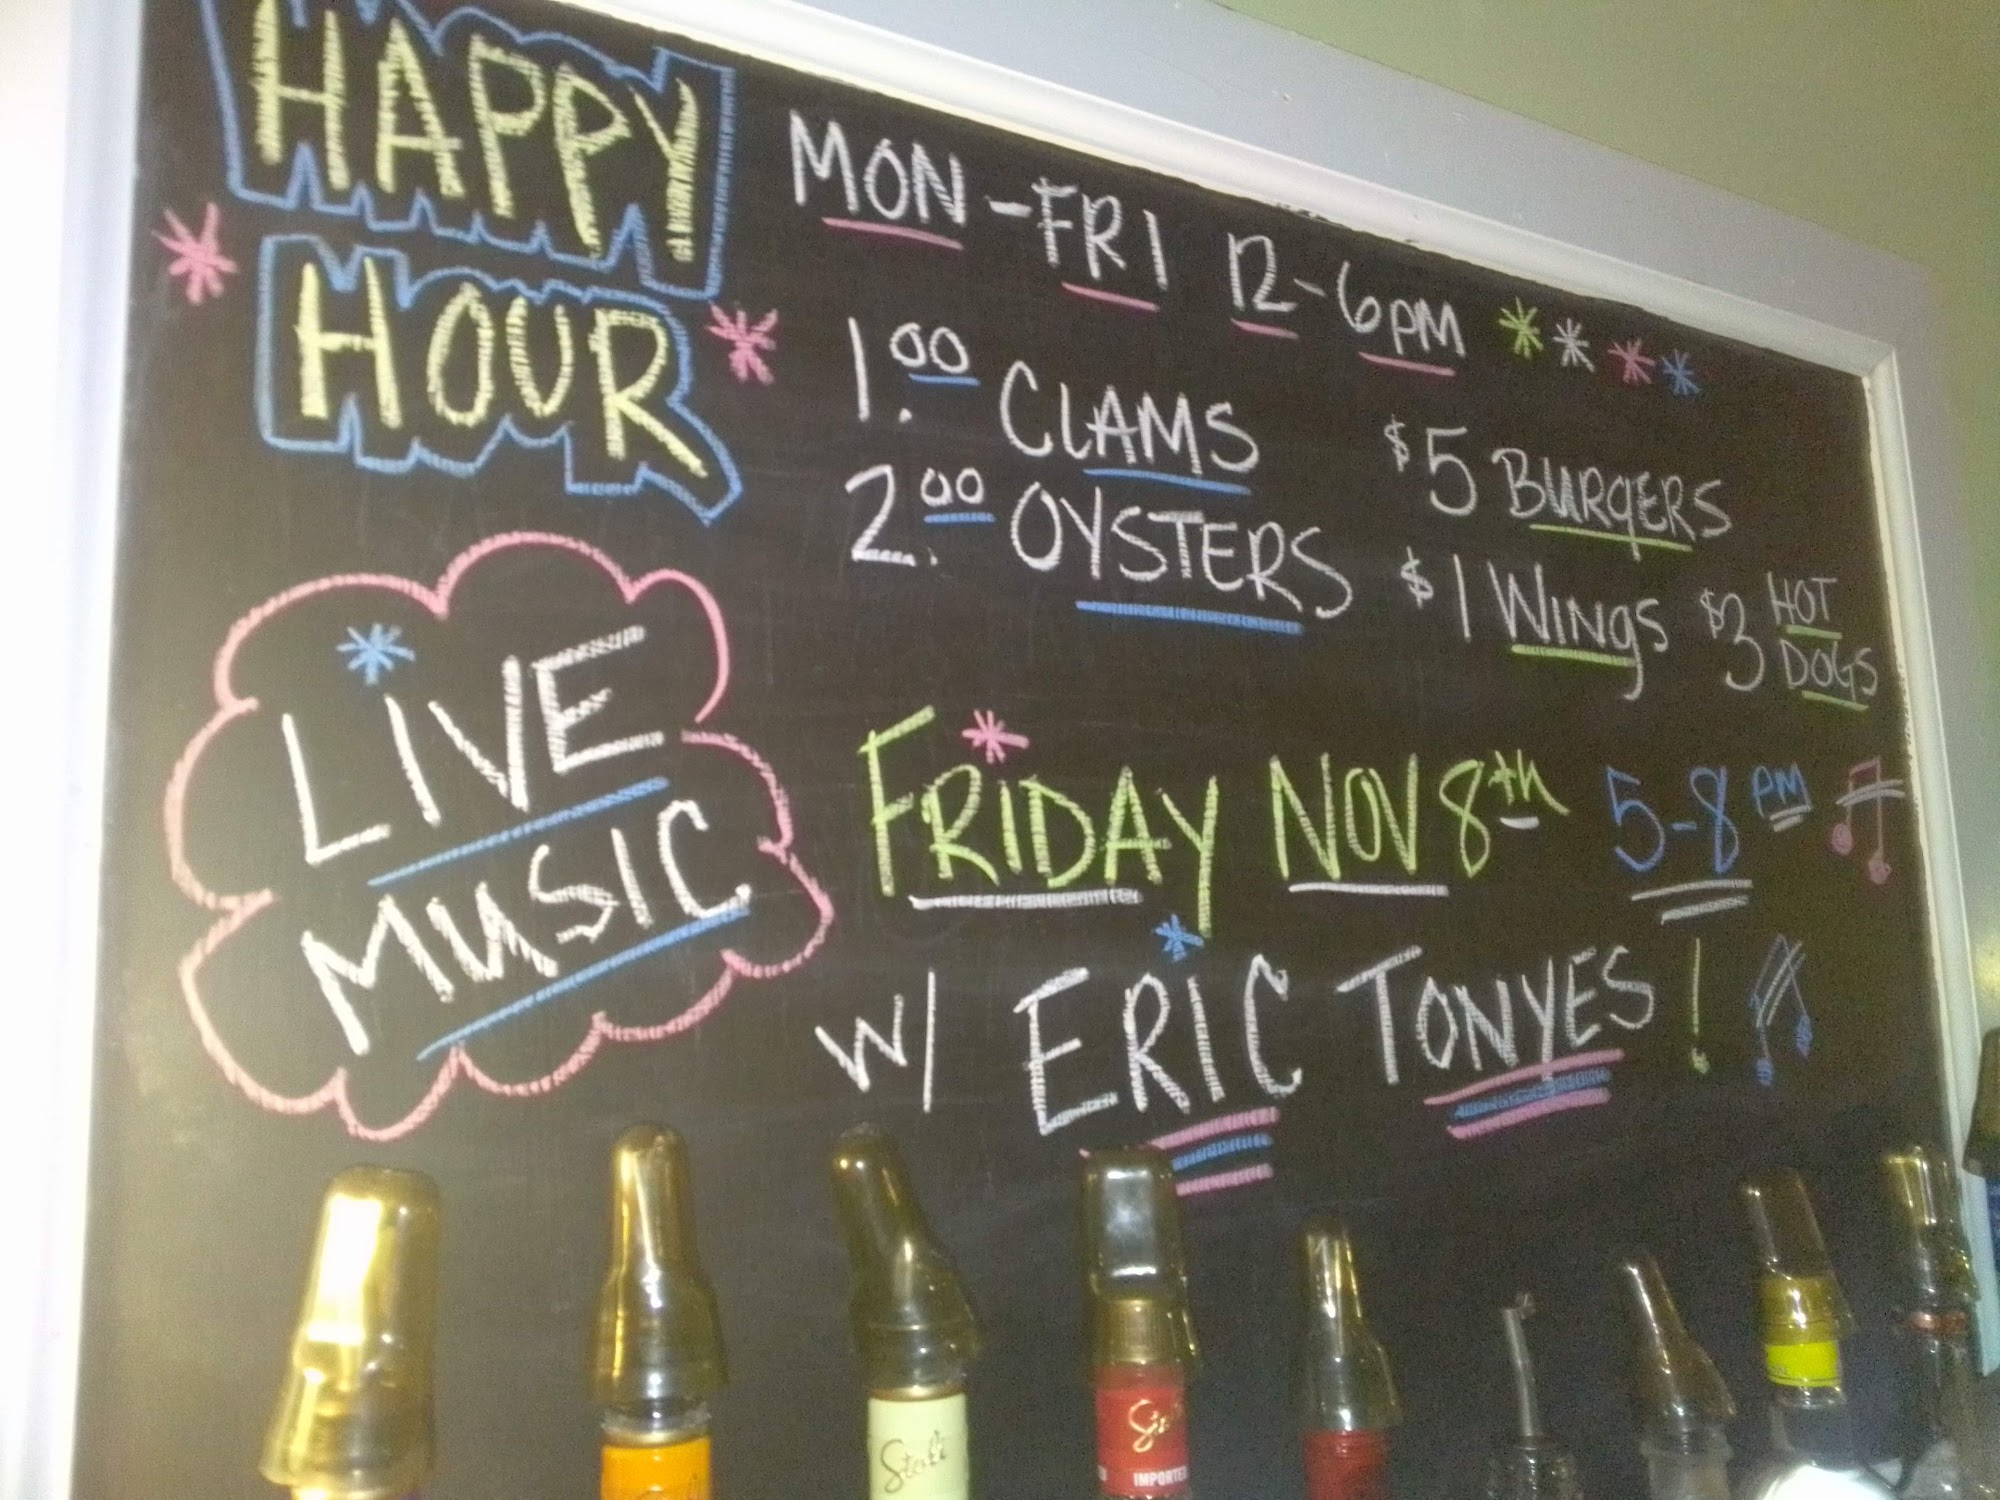 HAPPY
HOUR
MON-FRI 12-6PM
1.00 CLAMS
2.00 OYSTERS
$5 BURGERS
$1 WINGS
$3 HOT
DOGS
LIVE
MUSIC
FRIDAY NOV 8th 5-8 PM
W/ ERIC TONYES!
Stoli
IMPORTED